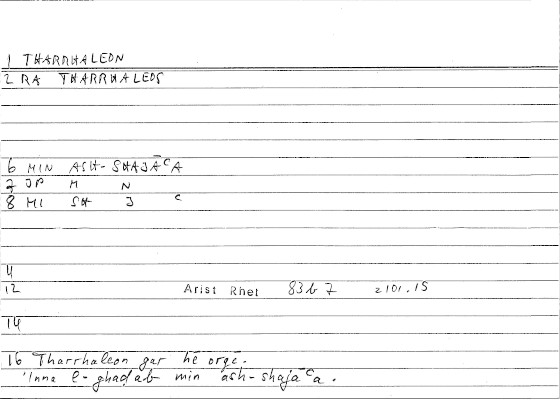 1 THARRHALEON
2 RA THARRHALEOS
6 MIN ASH-SHAJĀᶜA
7 JP M N
8 MI SH J ᶜ
11
12 Arist Rhet 83b7 2101.15
14
16 Tharrhaleon gar hē orgē.
'Inna l-ghaḍab min ash-shajāᶜa.